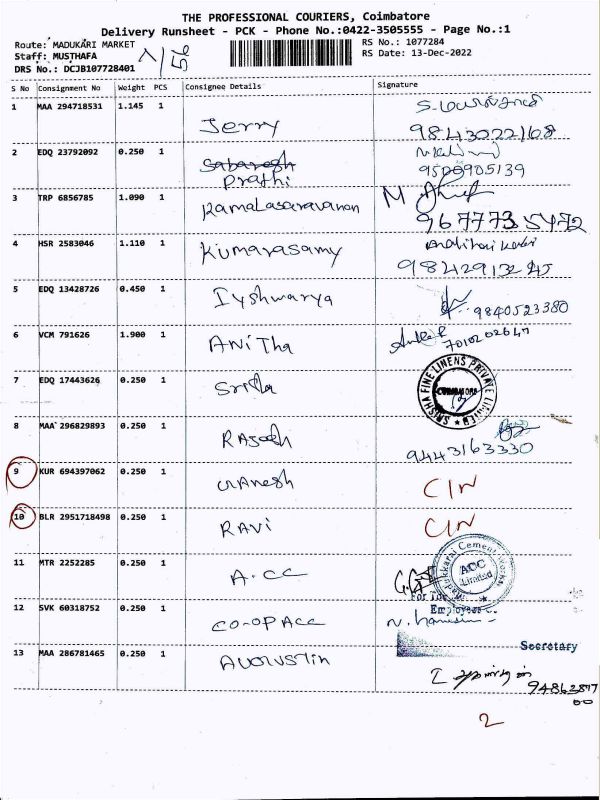 THE PROFESSIONAL COURIERS, Coimbatore
Delivery Runsheet - PCK - Phone No.:0422-3505555 - Page No.:1
Route: MADUKARI MARKET
RS No.: 1077284
Staff: MUSTHAFA
RS Date: 13-Dec-2022
DRS No.: DCJB107728401
S No Consignment No Weight PCS Consignee Details Signature
1 MAA 294718531 1.145 1 Jerry
9843022168
2 EDQ 23792092 0.250 1 Sabaresh
Prathi 9500905139
3 TRP 6856785 1.090 1 Kamalasaravanan M
9677735472
4 HSR 2583046 1.110 1 Kumarasamy
9842913245
5 EDQ 13428726 0.450 1 Iyshwarya 9840523380
6 VCM 791626 1.900 1 ANiTha 7010202647
7 EDQ 17443626 0.250 1 Sritha SRISHA FINE LINENS PRIVATE LIMITED
COIMBATORE
8 MAA 296829893 0.250 1 RAJesh 9443163330
9 KUR 694397062 0.250 1 GANesh C/N
10 BLR 2951718498 0.250 1 RAVi C/N
11 MTR 2252285 0.250 1 A.CC Madukkarai Cement Works
ACC
Limited
12 SVK 60318752 0.250 1 CO-OP Acc For The
Employees
Secretary
13 MAA 286781465 0.250 1 AUGUSTin
9486287700
2